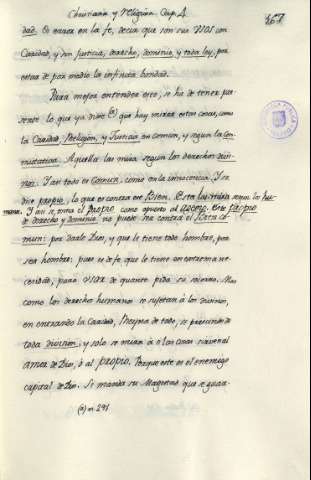 Christiana y religiosa Cap. 4
367
dad. Es error en la fe, decir que son sus usos con
Caridad, y son justicia, derecho, dominio, y toda ley, por
estar de por medio la infinita bondad.
Para mejor entender esto, se ha de tener pre-
sente lo que ya dixe (a) que hay mirar estas cosas, como
la Caridad, Religion, y Justicia en comun, y segun la con-
mutativa. Aquella las mira segun los derechos divi-
nos. Y asi todo es comun, como en la inocencia. Y se
dice propio, lo que es contra este Bien. Esta las mira segun los hu-
manos. Y asi se toma el propio como opuesto al ageno. Este propio
de derecho y dominio no puede ser contra el Bien co-
mun: por darle Dios, y que le tiene todo hombre, por
ser hombre: pues es de fe, que le tiene en extrema ne-
cesidad, para usar de quanto pida su socorro. Mas
como los derechos humanos se sujetan á los divinos,
en entrando la Caridad, Reyna de todo, se prescinde de
toda division, y solo se miran á si las cosas sirven al
amor de Dios, ó al propio. Porque este es el enemigo
capital de Dios. Si manda su Magestad que se guar-
(a) n. 291